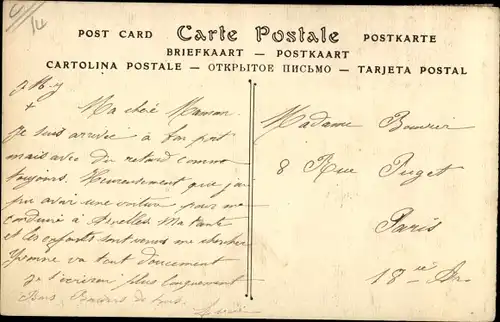 14
POST CARD Carte Postale POSTKARTE
BRIEFKAART — POSTKAART
CARTOLINA POSTALE — ОТКРЫТОЕ ПИСЬМО — TARJETA POSTAL
Ma chère Maman.
Je suis arrivée à bon port
mais avec du retard comme
toujours. Heureusement que j'ai
pu avoir une voiture pour me
conduire à Ma tante
et les enfants sont venus me chercher
Yvonne va tout doucement
Je t'écrirai plus longuement
Bons Baisers de tous.
Madame
8 Rue Puget
Paris
18 Arr.